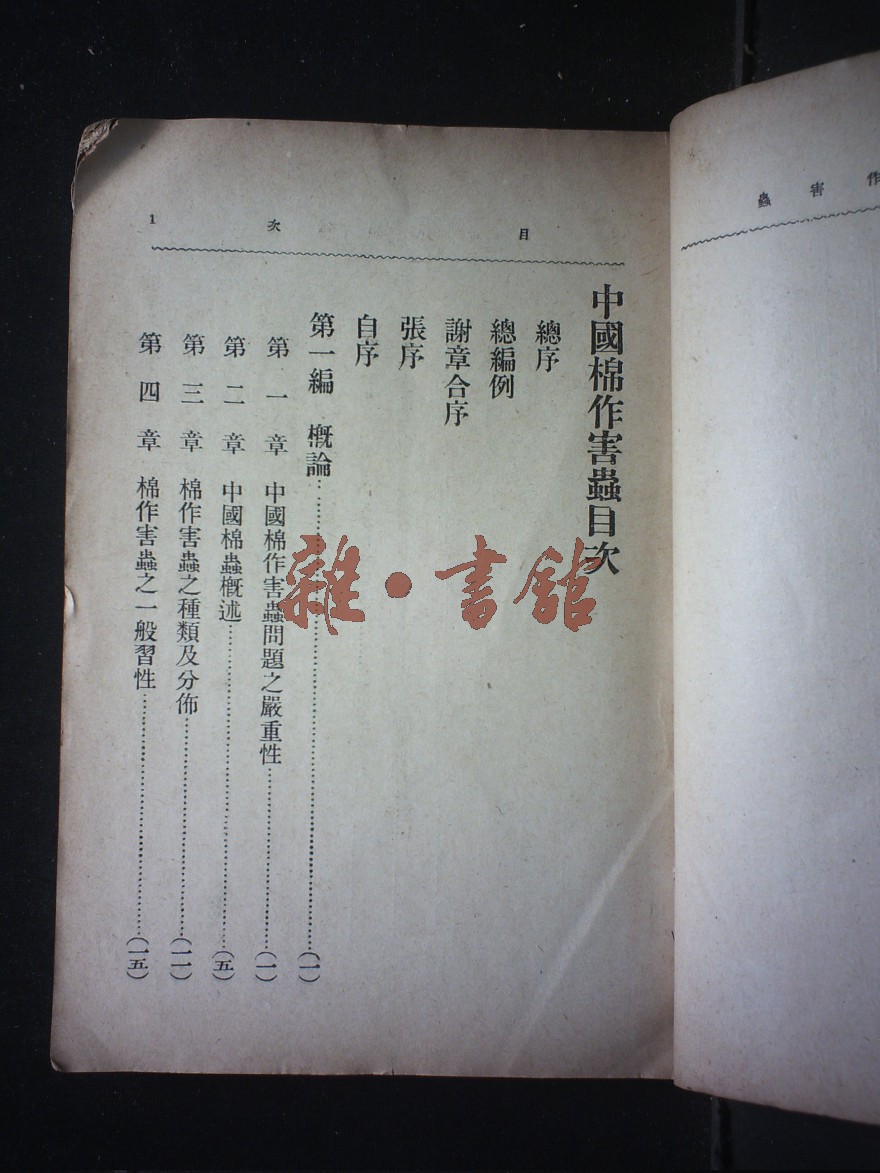 目次 1
中國棉作害蟲目次
總序
總編例
謝章合序
張序
自序
第一編 概論……(一)
第一章 中國棉作害蟲問題之嚴重性……(一)
第二章 中國棉蟲概述……(五)
第三章 棉作害蟲之種類及分佈……(一一)
第四章 棉作害蟲之一般習性……(一五)
作害蟲
雜·書館